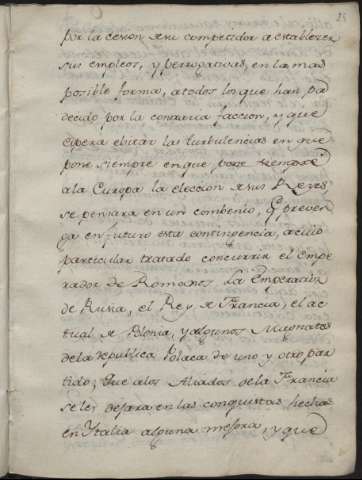 25
por la cesion de su competidor a establecer
sus empleos, y prerrogativas, en la mas
posible forma, a todos los que han pa
decido por la contraria faccion, y que
espera evitar las turbulencias en que
pone siempre en que pone siempre
a la Europa la eleccion de sus Reyes,
se pensara en un combenio, q preven
ga en futuro esta contingencia, a cuio
particular tratado concurrira el Empe
rador de Romanos. La Emperatriz
de Rusia, el Rey de Francia, el ac
tual de Polonia, y algunos Magnates
de la republica Polaca de uno y otro par
tido; Que a los Aliados de la Francia
se les dejara en las conquistas hechas
en Italia alguna mejora, y que